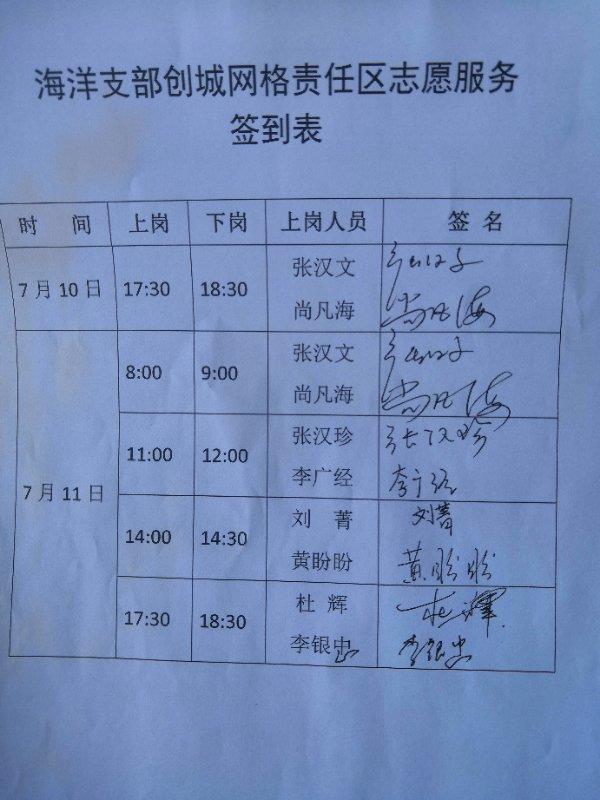 海洋支部创城网格责任区志愿服务
签到表
时 间 上岗 下岗 上岗人员 签 名
7月10日 17:30 18:30 张汉文
尚凡海 尚凡海
7月11日 8:00 9:00 张汉文
尚凡海 尚凡海
11:00 12:00 张汉珍 张汉珍
李广经 李广经
14:00 14:30 刘 菁 刘菁
黄盼盼 黄盼盼
17:30 18:30 杜 辉 杜辉
李银忠 李银忠